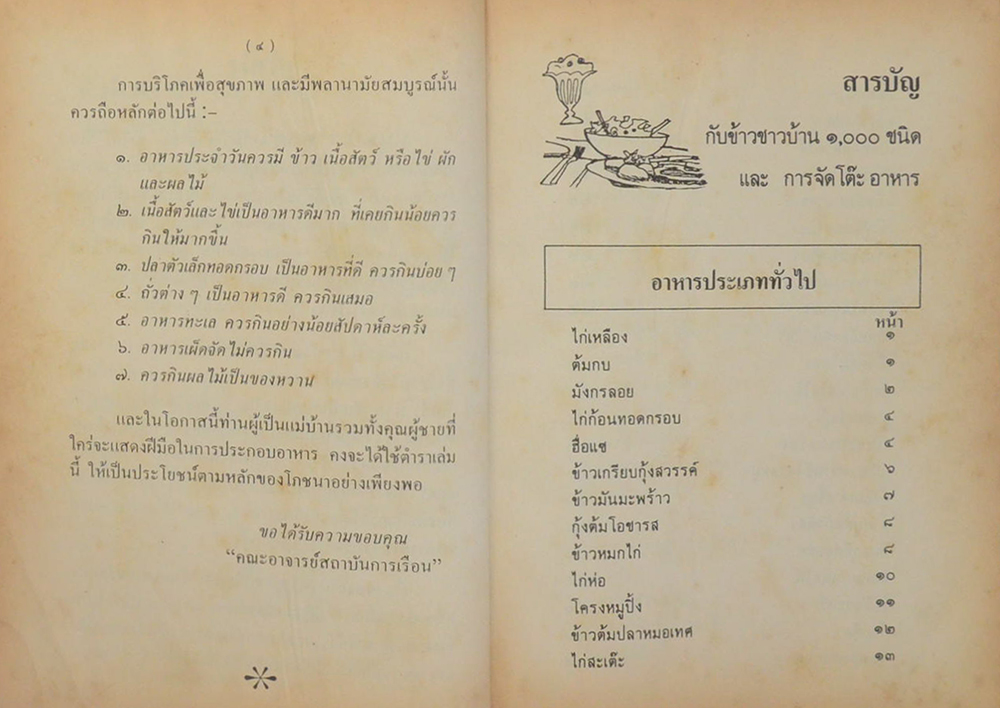 (๔)
การบริโภคเพื่อสุขภาพ และมีพลานามัยสมบูรณ์นั้น
ควรถือหลักต่อไปนี้ :–
๑. อาหารประจำวันควรมี ข้าว เนื้อสัตว์ หรือไข่ ผัก
และผลไม้
๒. เนื้อสัตว์และไข่เป็นอาหารดีมาก ที่เคยกินน้อยควร
กินให้มากขึ้น
๓. ปลาตัวเล็กทอดกรอบ เป็นอาหารที่ดี ควรกินบ่อย ๆ
๔. ถั่วต่าง ๆ เป็นอาหารดี ควรกินเสมอ
๕. อาหารทะเล ควรกินอย่างน้อยสัปดาห์ละครั้ง
๖. อาหารเผ็ดจัดไม่ควรกิน
๗. ควรกินผลไม้เป็นของหวาน
และในโอกาสนี้ท่านผู้เป็นแม่บ้านรวมทั้งคุณผู้ชายที่
ใคร่จะแสดงฝีมือในการประกอบอาหาร คงจะได้ใช้ตำราเล่ม
นี้ ให้เป็นประโยชน์ตามหลักของโภชนาอย่างเพียงพอ
ขอได้รับความขอบคุณ
“คณะอาจารย์สถาบันการเรือน”
สารบัญ
กับข้าวชาวบ้าน ๑,๐๐๐ ชนิด
และ การจัดโต๊ะอาหาร
อาหารประเภททั่วไป
หน้า
ไก่เหลือง ๑
ต้มกบ ๑
มังกรลอย ๒
ไก่ก้อนทอดกรอบ ๔
ฮื่อแซ ๔
ข้าวเกรียบกุ้งสวรรค์ ๖
ข้าวมันมะพร้าว ๗
กุ้งต้มโอชารส ๘
ข้าวหมกไก่ ๘
ไก่ห่อ ๑๐
โครงหมูปิ้ง ๑๑
ข้าวต้มปลาหมอเทศ ๑๒
ไก่สะเต๊ะ ๑๓